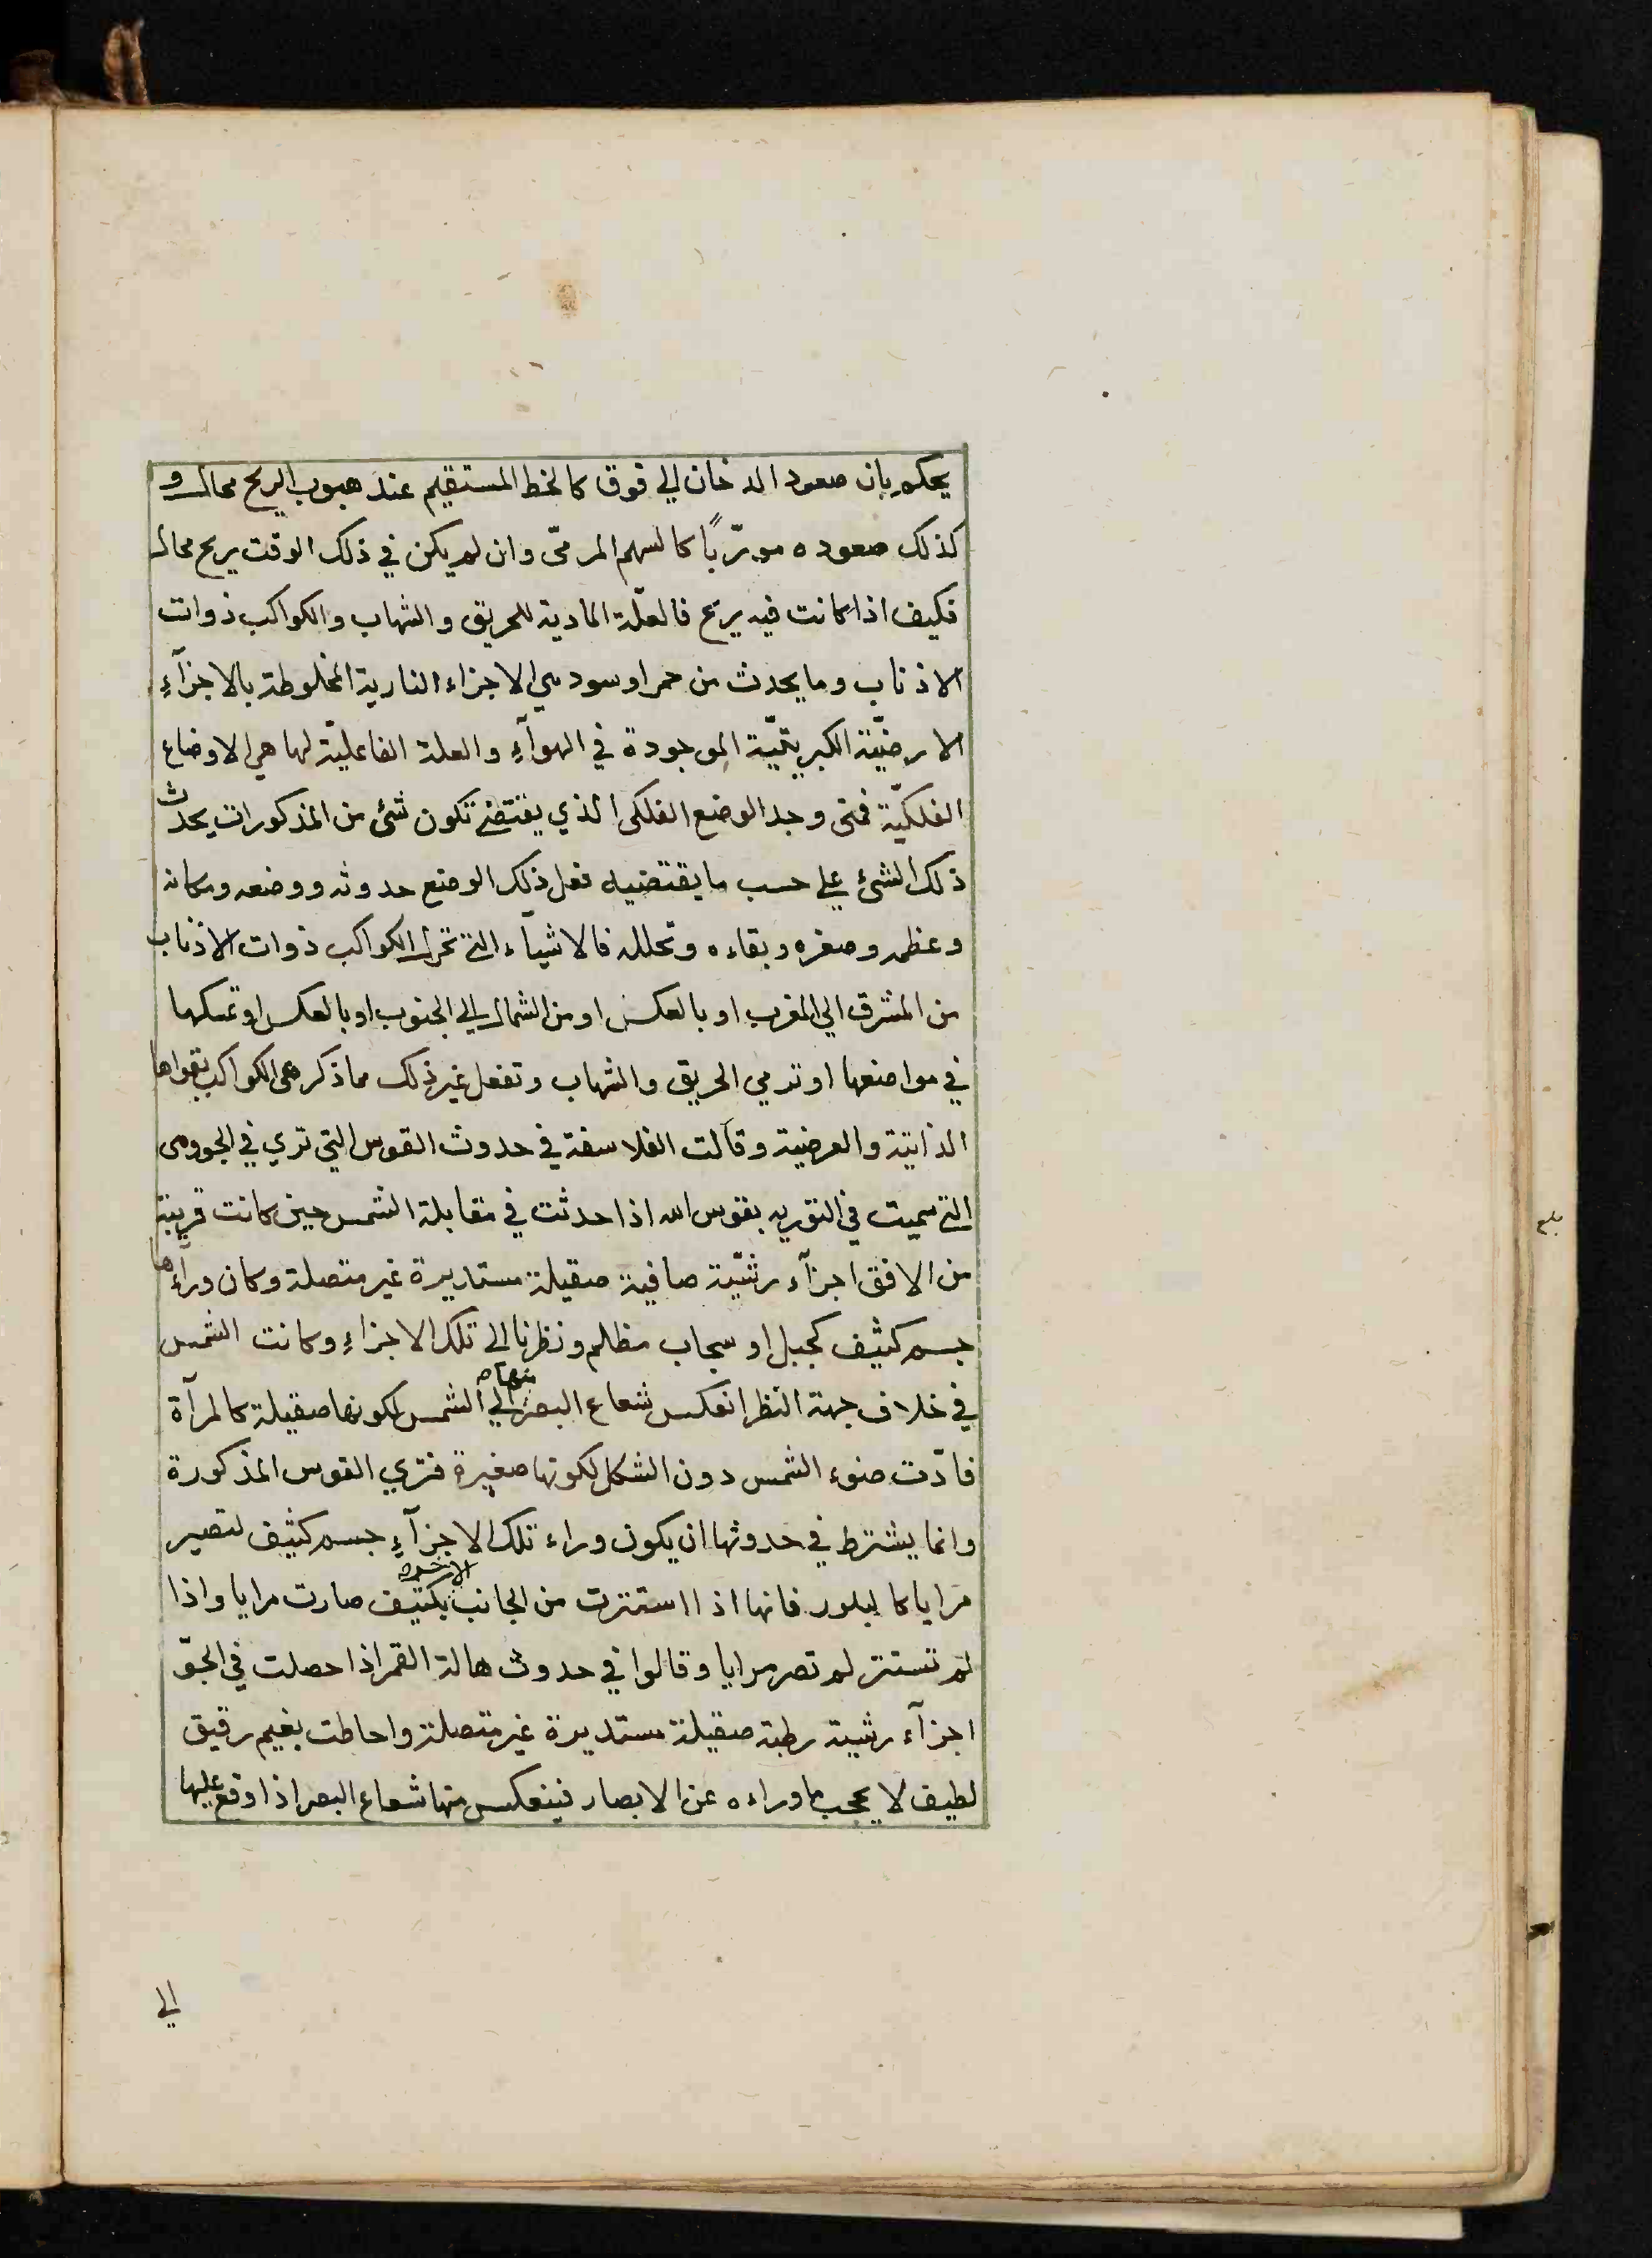 يحكم بان صعود الدخان الي فوق كالخط المستقيم عند هبوب الريح محال و
كذلك صعوده مورّبًا كالسهم المرمّى وان لم يكن في ذلك الوقت ريح محال
فكيف اذا كانت فيه ريح فالعلّة المادية للحريق والشهاب والكواكب ذوات
الاذناب وما يحدث من حمر او سود هي الاجزاء النارية المخلوطة بالاجزآءِ
الارضيّة الكبريتيّة الموجودة في الهوآءِ والعلة الفاعليّة لها هي الاوضاع
الفلكيّة فمتى وجد الوضع الفلكى الذي يقتضي تكون شئ من المذكورات يحدث
ذلك الشئ علي حسب ما يقتضيه فعل ذلك الوضع حدوثه ووضعه ومكانه
وعظمه وصغره وبقاءه وتحلله فالاشيآء التي تحرك الكواكب ذوات الاذناب
من المشرق الي المغرب او بالعكس او من الشمال الي الجنوب او بالعكس او تمسكها
في مواضعها او ترمي الحريق والشهاب وتفعل غير ذلك مما ذكر هى الكواكب بقواها
الذاتية والعرضية وقالت الفلاسفة في حدوث القوس التي تري في الجو وهى
التي سميت في التوريه بقوس الله اذا حدثت في مقابلة الشمس حين كانت قريبة
من الافق اجزآء رشّيّة صافية صقيلة مستديرة غير متصلة وكان ورآءها
جسم كثيف كجبل او سحاب مظلم ونظرنا الى تلك الاجزاءِ وكانت الشمس
في خلاف جهة النظر انعكس شعاع البصر منها الي الشمس لكونها صقيلة كالمرآة
فادّت ضوء الشمس دون الشكل لكونها صغيرة فتري القوس المذكورة
وانما يشترط في حدوثها ان يكون وراء تلك الاجزآءِ جسم كثيف لتصير
مرايا كالبلور فانها اذا استترت من الجانب الاخر بكثيف صارت مرايا واذا
لم تستتر لم تصر مرايا وقالوا في حدوث هالة القمر اذا حصلت في الجوّ
اجزآء رشية رطبة صقيلة مستديرة غير متصلة واحاطت بغيم رقيق
لطيف لا يحجب ما وراءه عن الابصار فينعكس منها شعاع البصر اذا وقع عليها
الي